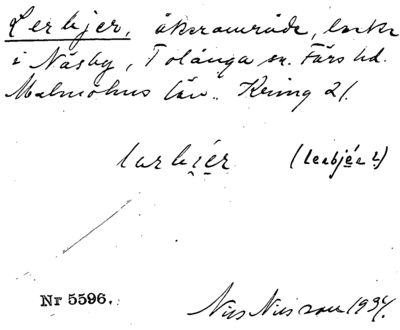 Lerbjer, åkerområde, backe
i Näsby, Tolånga sn. Färs hd.
Malmöhus län. Kring 21.
larbjér (leabjéa2)
Nr 5596.
Nils Nilsson 1934.